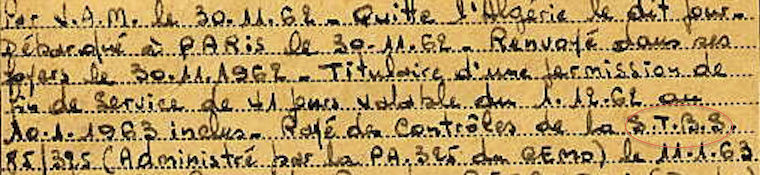 Par V.A.M. le 30.11.62 - Quitte l'Algérie le dit jour -
Débarqué à PARIS le 30-11-62 - Renvoyé dans ses
foyers le 30.11.1962 - Titulaire d'une permission de
fin de service de 41 jours valable du 1.12.62 au
10.1.1963 inclus - Rayé des Contrôles de la S.T.B.S.
85/395 (Administré par la PA.395 du GEMO) le 11.1.63.